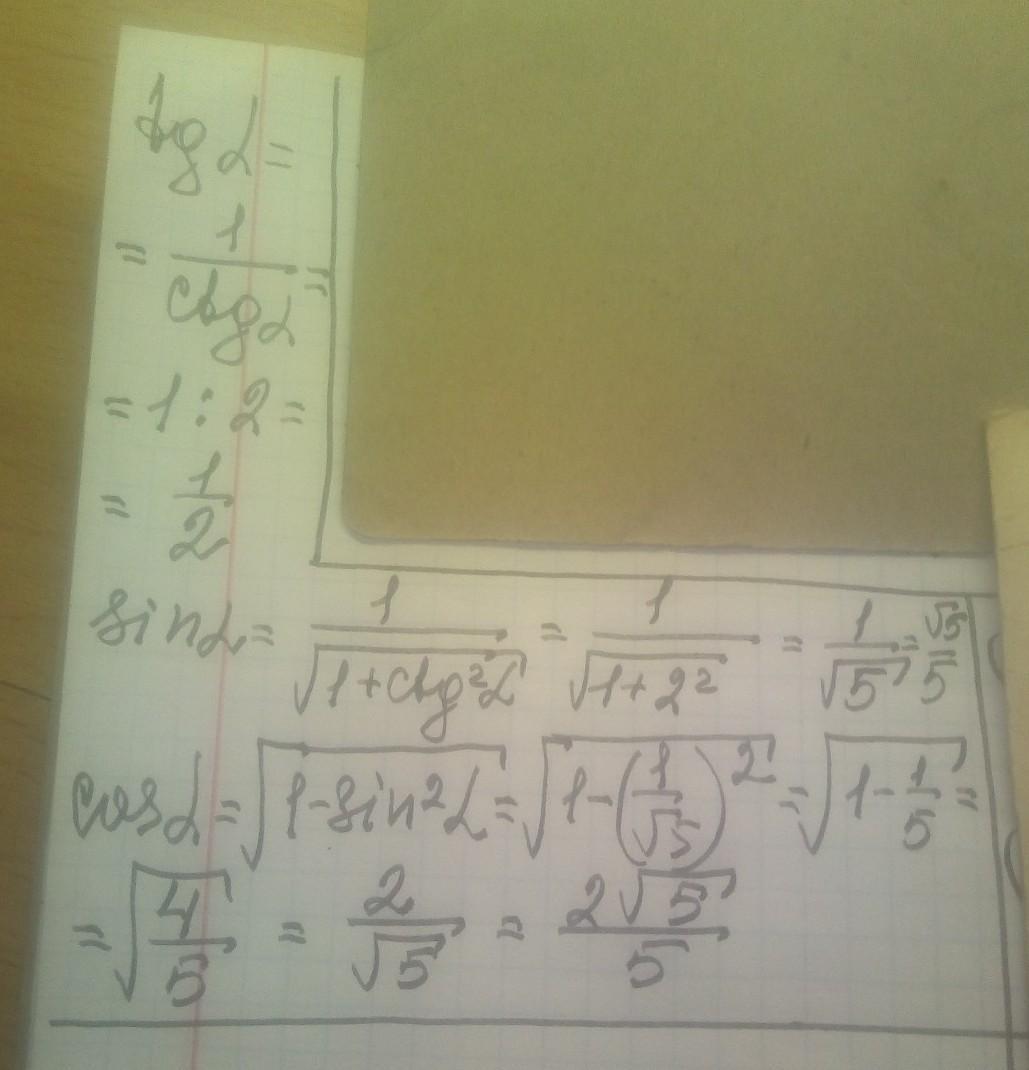 tg α =
= 1/ctg α =
= 1 : 2 =
= 1/2
sin α = 1/√(1+ctg²α) = 1/√(1+2²) = 1/√5 = √5/5
cos α = √(1-sin²α) = √(1-(1/√5)²) = √(1-1/5) =
= √(4/5) = 2/√5 = 2√5/5